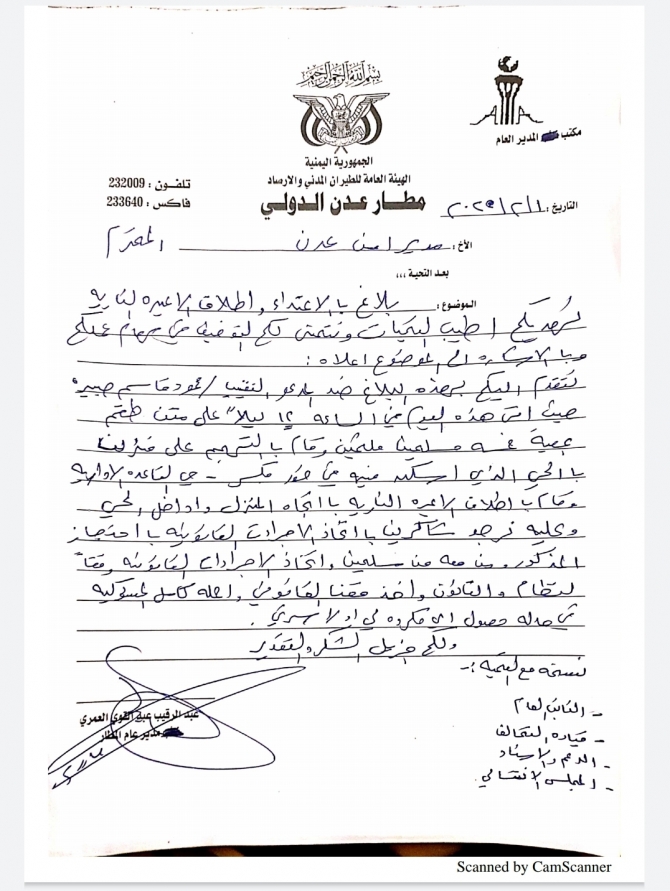 بسم الله الرحمن الرحيم
الجمهورية اليمنية
الهيئة العامة للطيران المدني والارصاد
مطار عدن الدولي
مكتب المدير العام
تلفون : 232009
فاكس : 233640
التاريخ :
الأخ : مدير امن عدن المحترم
بعد التحية ،،،
الموضوع : بلاغ بالاعتداء واطلاق الاعيره الناريه
نهديكم اطيب التحيات ونتمنى لكم التوفيق في مهام عملكم
وبالاشاره الى الموضوع اعلاه :
نتقدم اليكم بهذه البلاغ ضد المدعو النقيب / قاسم
حيث اتى هذه اليوم في الساعه ١٢ ليلاً على متن طقم
بمعية خمسه مسلحين ملثمين وقام بالتهجم على منزلنا
بالحي الذي اسكن فيه في خور مكسر - حي القاعده الاداريه
وقام باطلاق الاعيره الناريه باتجاه المنزل وداخل الحي
وعليه نرجو شاكرين باتخاذ الاجراءات القانونيه باحتجاز
المذكور ومن معه من مسلحين واتخاذ الاجراءات القانونيه وفقاً
للنظام والقانون واخذ حقنا القانوني واحمله كامل المسؤليه
في حاله حصول اي مكروه لي او لاسرتي .
ولكم جزيل الشكر والتقدير
نسخه مع التحية :-
- النائب العام
- قياده التحالف
- الدعم والاسناد
- المجلس الانتقالي
عبد الرقيب عبد القوي العمري
مدير عام المطار
Scanned by CamScanner